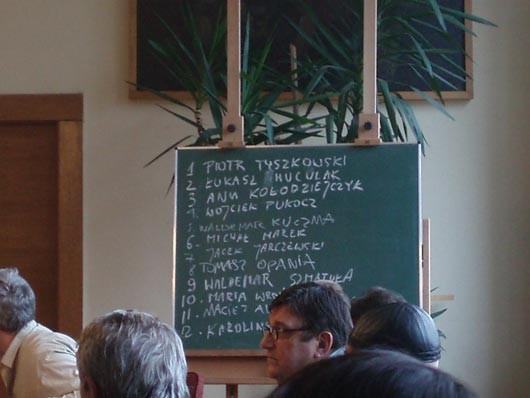 1 PIOTR TYSZKOWSKI
2 ŁUKASZ HUCULAK
3 ANN KOŁODZIEJCZYK
4. WOJCIEK PUKOCZ
5. WALDEMAR KUCZMA
6. MICHAŁ MAREK
7 JACEK JARCZEWSKI
8 TOMASZ OPANIA
9 WALDEMAR SZMATUŁA
10. MARIA
11. MACIEJ
12. KAROLIN